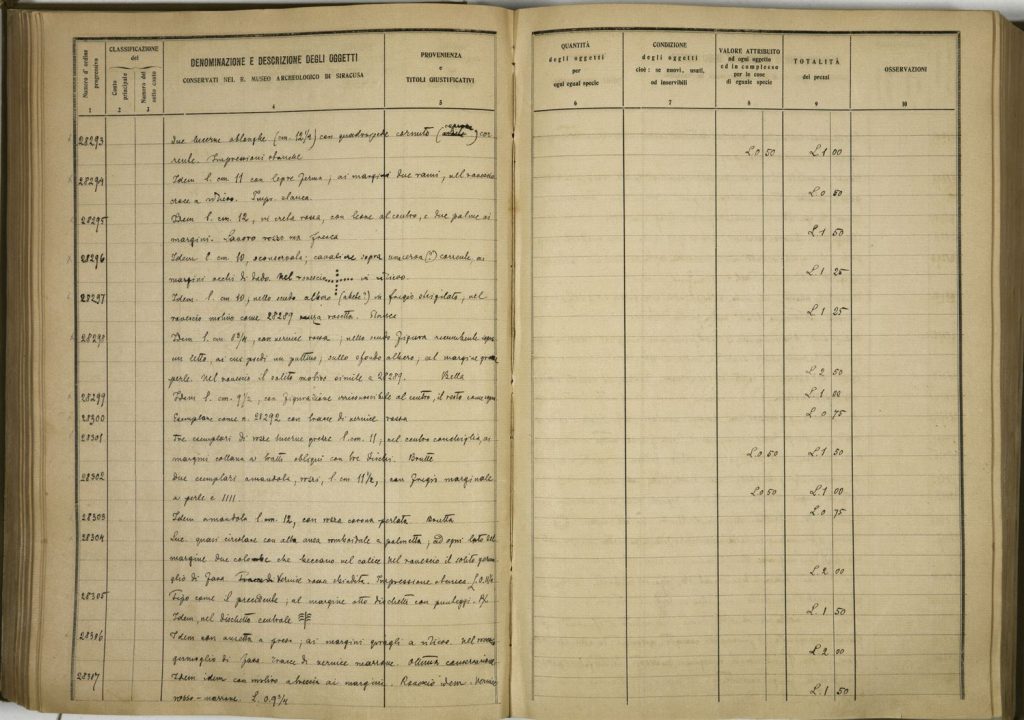 Numero d'ordine progressivo
CLASSIFICAZIONE
del
Conto principale
Numero del sotto conto
DENOMINAZIONE E DESCRIZIONE DEGLI OGGETTI
CONSERVATI NEL R. MUSEO ARCHEOLOGICO DI SIRACUSA
PROVENIENZA
e
TITOLI GIUSTIFICATIVI
QUANTITÀ
degli oggetti
per
ogni egual specie
CONDIZIONE
degli oggetti
cioè: se nuovi, usati,
od inservibili
VALORE ATTRIBUITO
ad ogni oggetto
ed in complesso
per le cose
di eguale specie
TOTALITÀ
dei prezzi
OSSERVAZIONI
1 2 3 4 5 6 7 8 9 10
28293 Due lucerne oblunghe (cm. 12½) con quadrupede cornuto ( ) cor
rente. Impressioni stanche L. 0 50 L. 1 00
28294 Idem l. cm 11 con lepre ferma; ai margini due rami, nel rovescio
croce a rilievo. Impr. stanca. L. 0 50
28295 Idem l. cm. 12, in creta rossa, con leone al centro, e due palme ai
margini. Lavoro rozzo ma fresco L. 1 50
28296 Idem l. cm 10, cavaliere sopra una cerva (?) corrente, ai
margini occhi di dado. Nel rovescio in rilievo L. 1 25
28297 Idem l. cm 10, nello scudo albero (abete?) in fregio strigilato, nel
rovescio motivo come 28289 senza rosetta. L. 1 25
28298 Idem l. cm. 8¾, con vernice rossa, nello scudo figura recumbente sopra
un letto, ai cui piedi un puttino, sullo sfondo albero, al margine grosse
perle. Nel rovescio il solito motivo simile a 28289. Bella L. 2 50
28299 Idem l. cm. 9½, con figurazione irriconoscibile al centro, il resto come sopra L. 1 00
28300 Esemplare come n. 28292 con tracce di vernice rossa L. 0 75
28301 Tre esemplari di rozze lucerne grosse l. cm. 11; nel centro conchiglia, ai
margini collana a tratti obliqui con tre dischi. Brutte L. 0 50 L. 1 50
28302 Due esemplari amandola, rozzi, l. cm 11½, con fregio marginale
a perle e IIII. L. 0 50 L. 1 00
28303 Idem amandola l. cm. 12, con rozza corona perlata Brutta L. 0 75
28304 Luc. quasi circolare con alta ansa romboidale a palmetta; ad ogni lato del
margine due colombe che beccano nel calice nel rovescio il solito germo
glio di foss. Vernice rossa sbiadita. Impressione stanca. L. 2 00
28305 Tipo come il precedente, al margine otto dischetti con punteggi.
Idem, nel dischetto centrale L. 1 50
28306 Idem con ansetta a presa; ai margini giragli a rilievo. Nel rovescio
germoglio di foss. Tracce di vernice marrone. Ottima conservazione L. 2 00
28307 Idem idem con motivo a treccia ai margini. Rovescio idem. Vernice
rosso-marrone. L. 0.9¾ L. 1 50